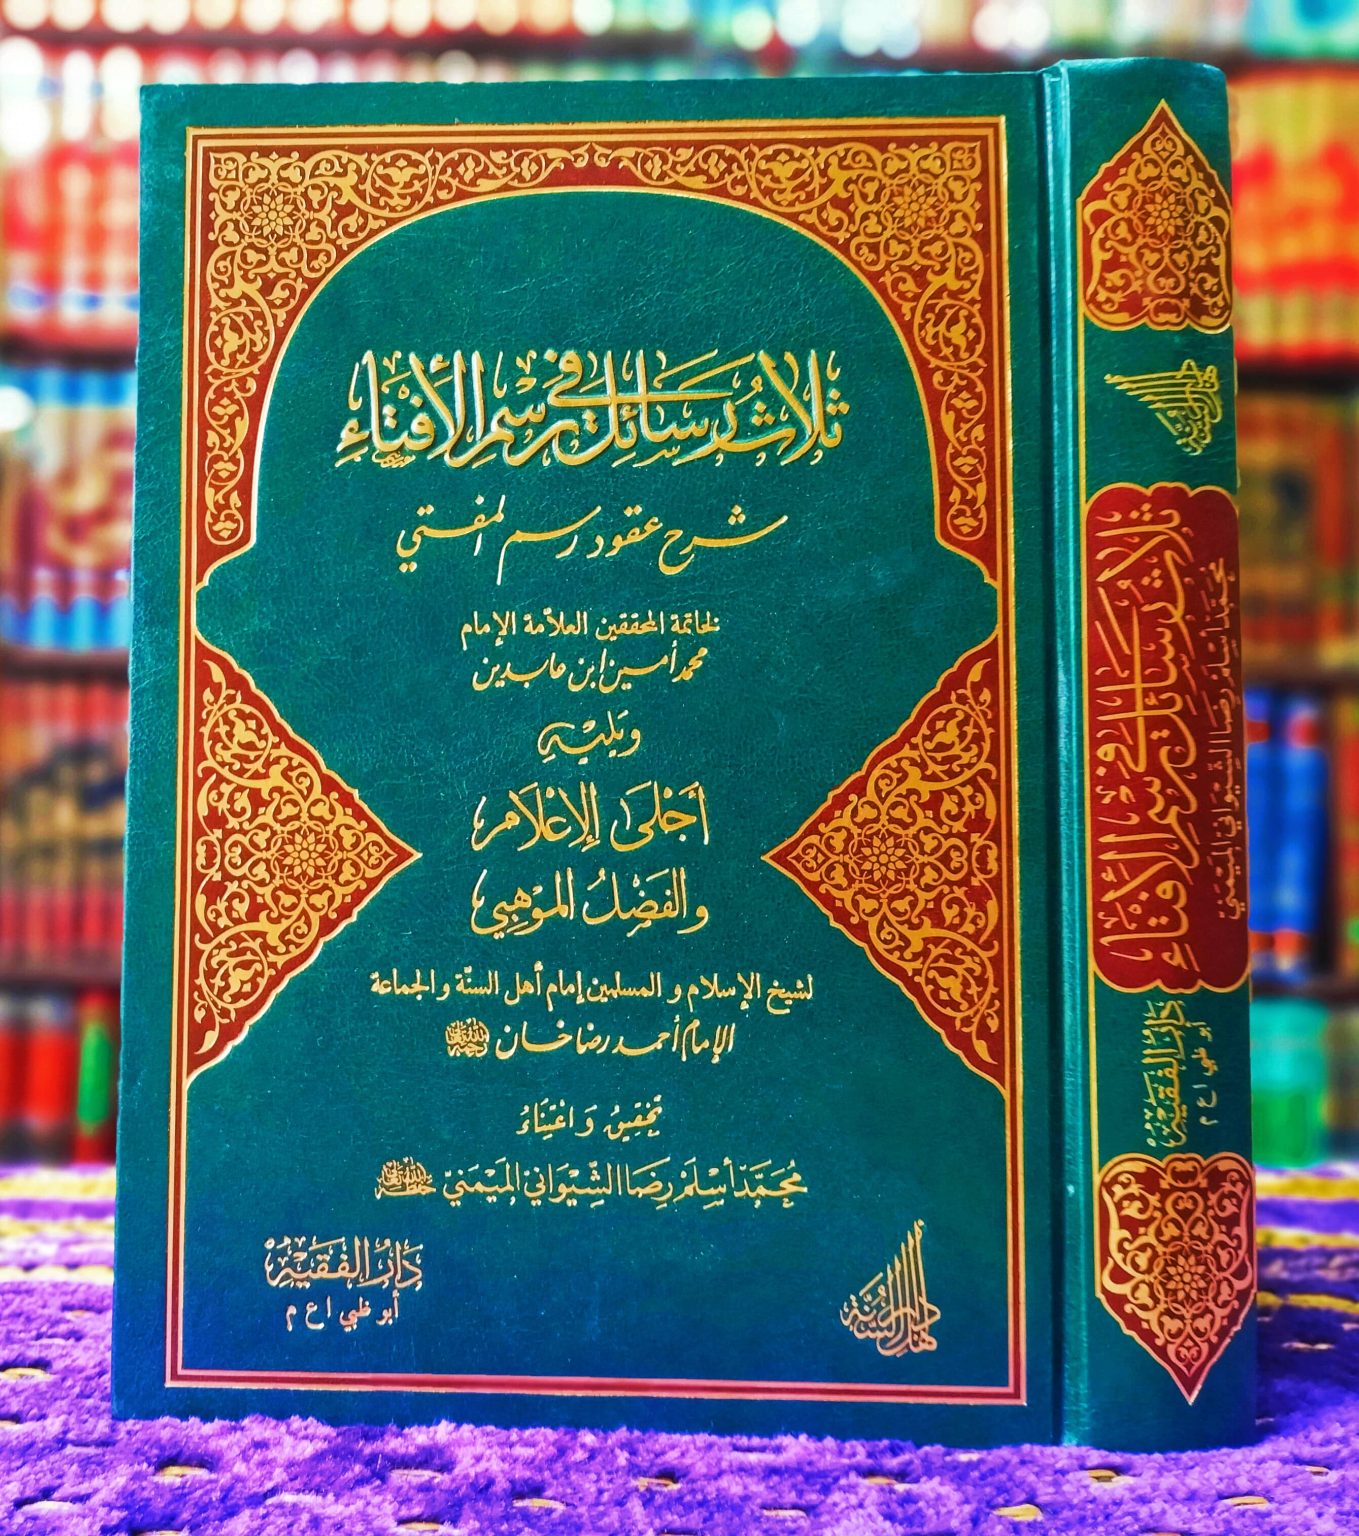 ثلاث رسائل في رسم الأفتاء
شرح عقود رسم المفتي
لخاتمة المحققين العلاّمة الإمام
محمد أمين ابن عابدين
ويليه
أجلى الإعلام
والفضل الموهبي
لشيخ الإسلام و المسلمين إمام أهل السنّة والجماعة
الإمام أحمد رضا خان رحمه الله
تحقيق و اعتناء
محمّد أسلم رضا الشّيواني الميمنيّ حفظه الله
دار الفقيه
أبو ظبي ا ع م
دار أهل السنة
دار أهل السنة
ثلاث رسائل في رسم الأفتاء
محمّد أسلم رضا الشّيواني الميمنيّ
دار الفقيه
أبو ظبي ا ع م